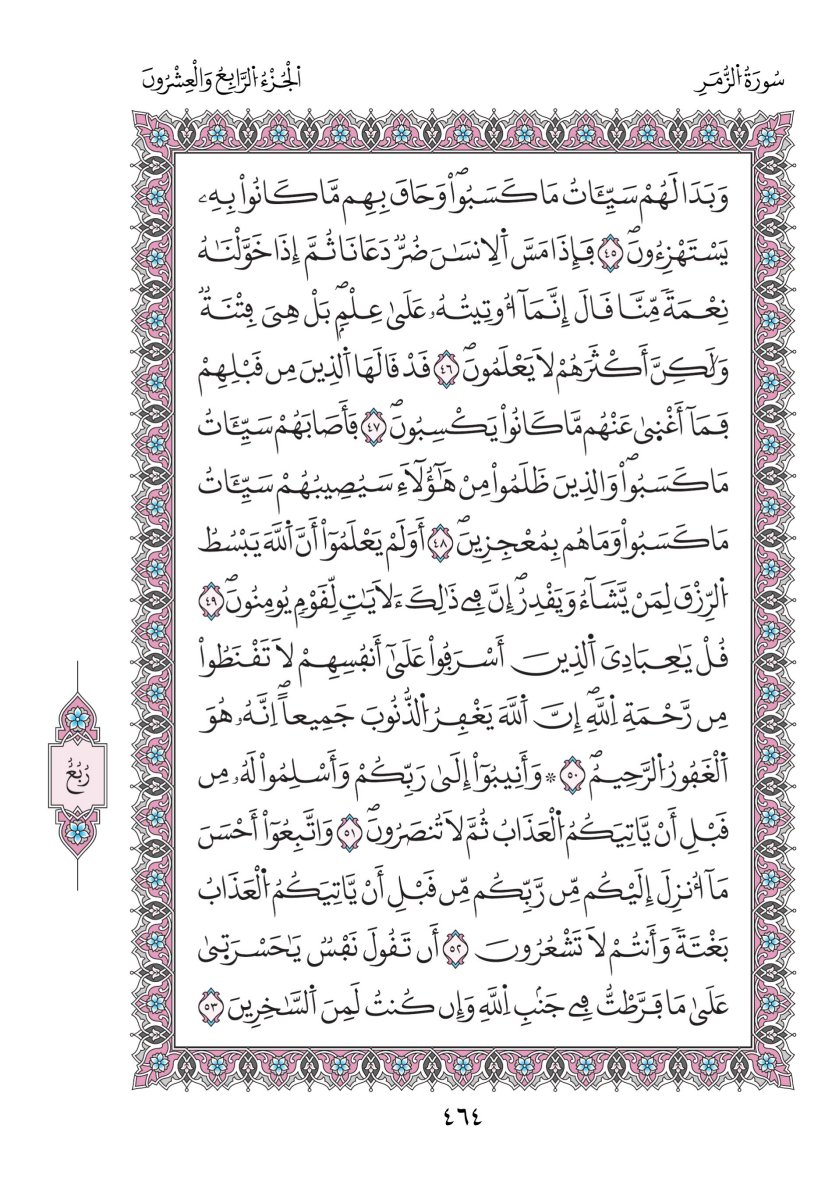 سُورَةُ اُ۬لزُّمَرِ
اَ۬لْجُزْءُ اُ۬لرَّابِعُ وَالْعِشْرُونَ
وَبَدَا لَهُمْ سَيِّـَٔاتُ مَا كَسَبُواْۖ وَحَاقَ بِهِم مَّا كَانُواْ بِهِۦ
يَسْتَهْزِءُونَۖ ٤٥ فَإِذَا مَسَّ اَ۬لِانسَٰنَ ضُرّٞ دَعَانَا ثُمَّ إِذَا خَوَّلْنَٰهُ
نِعْمَةٗ مِّنَّا قَالَ إِنَّمَآ أُوتِيتُهُۥ عَلَىٰ عِلْمِۢۖ بَلْ هِيَ فِتْنَةٞ
وَلَٰكِنَّ أَكْثَرَهُمْ لَا يَعْلَمُونَۖ ٤٦ قَدْ قَالَهَا اَ۬لذِينَ مِن قَبْلِهِمْ
فَمَآ أَغْنَىٰ عَنْهُم مَّا كَانُواْ يَكْسِبُونَۖ ٤٧ فَأَصَابَهُمْ سَيِّـَٔاتُ
مَا كَسَبُواْۖ وَالذِينَ ظَلَمُواْ مِنْ هَٰٓؤُلَآءِ سَيُصِيبُهُمْ سَيِّـَٔاتُ
مَا كَسَبُواْ وَمَا هُم بِمُعْجِزِينَۖ ٤٨ أَوَلَمْ يَعْلَمُوٓاْ أَنَّ اَ۬للَّهَ يَبْسُطُ
اُ۬لرِّزْقَ لِمَنْ يَّشَآءُ وَيَقْدِرُۖ إِنَّ فِے ذَٰلِكَ ءَلَايَٰتٖ لِّقَوْمٖ يُومِنُونَۖ ٤٩
قُلْ يَٰعِبَادِيَ اَ۬لذِينَ أَسْرَفُواْ عَلَىٰٓ أَنفُسِهِمْ لَا تَقْنَطُواْ
مِن رَّحْمَةِ اِ۬للَّهِۖ إِنَّ اَ۬للَّهَ يَغْفِرُ اُ۬لذُّنُوبَ جَمِيعاًۖ اِنَّهُۥ هُوَ
اَ۬لْغَفُورُ اُ۬لرَّحِيمُۖ ٥٠ ۞ وَأَنِيبُوٓاْ إِلَىٰ رَبِّكُمْ وَأَسْلِمُواْ لَهُۥ مِن
قَبْلِ أَنْ يَّاتِيَكُمُ اُ۬لْعَذَابُ ثُمَّ لَا تُنصَرُونَۖ ٥١ وَاتَّبِعُوٓاْ أَحْسَنَ
مَآ أُنزِلَ إِلَيْكُم مِّن رَّبِّكُم مِّن قَبْلِ أَنْ يَّاتِيَكُمُ اُ۬لْعَذَابُ
بَغْتَةٗ وَأَنتُمْ لَا تَشْعُرُونَ ٥٢ أَن تَقُولَ نَفْسٞ يَٰحَسْرَتَىٰ
عَلَىٰ مَا فَرَّطتُّ فِے جَنۢبِ اِ۬للَّهِ وَإِن كُنتُ لَمِنَ اَ۬لسَّٰخِرِينَ ٥٣
رُبُعُ
٤٦٤